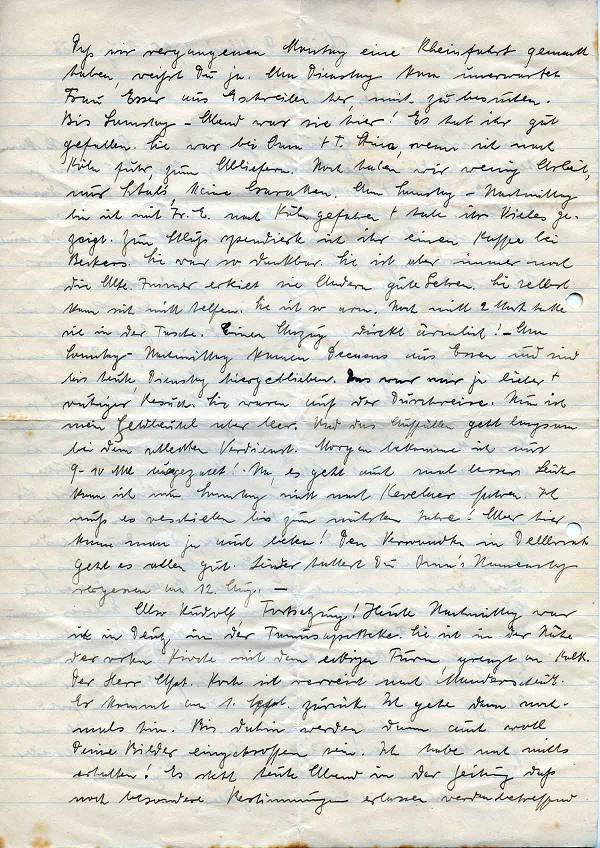 Daß wir vergangenen Montag eine Rheinfahrt gemacht
haben, weißt Du ja. Am Dienstag kam unerwartet
Frau Esser aus Eschweiler her, mich zu besuchen.
Bis Samstag-Abend war sie hier! Es hat ihr gut
gefallen. Sie war bei Oma + T. Änne, wenn ich nach
Köln fuhr, zum Abliefern. Noch haben wir wenig Arbeit,
nur Schals, keine Krawatten. Am Samstag-Nachmittag
bin ich mit Fr. E. nach Köln gefahren + habe ihr Vieles ge-
zeigt. Zum Schluß spendierte ich ihr einen Kaffee bei
Beckers. Sie war so dankbar. Sie ist aber immer noch
die Alte. Immer erteilt sie Andern gute Lehren. Sie selbst
kann sich nicht helfen. Sie ist so arm. Noch nicht 2 Mark hatte
sie in der Tasche. Einen Anzug, direkt ärmlich! - Am
Sonntag-Nachmittag kamen aus Essen und sind
bis heute, Dienstag hiergeblieben. Das war mir ja lieber +
ruhiger Besuch. Sie waren auf der Durchreise. Nun ist
mein Geldbeutel aber leer. Und das Auffüllen geht langsam
bei dem schlechten Verdienst. Morgen bekomme ich nur
9-10 Mk ausgezahlt! Na, es geht auch mal besser. Leider
kann ich am Sonntag nicht nach Kevelaer fahren. Ich
muß es verschieben bis zum nächsten Jahre! Aber hier
kann man ja auch beten! Den Verwandten in Dellbrück
geht es allen gut. Leider hattest Du Oma's Namenstag
vergessen am 12. Aug. —
Also Rudolf, Fortsetzung! Heute Nachmittag war
ich in Deutz in der Taunusapotheke. Sie ist in der Nähe
der roten Kirche mit dem eckigen Turm, grenzt an Kalk.
Der Herr Apoth. Koch ist verreist nach Manderscheid.
Er kommt am 1. Sept. zurück. Ich gehe dann noch-
mals hin. Bis dahin werden dann auch wohl
Deine Bilder eingetroffen sein. Ich habe noch nichts
erhalten! Es steht heute Abend in der Zeitung daß
noch besondere Bestimmungen erlassen werden betreffend